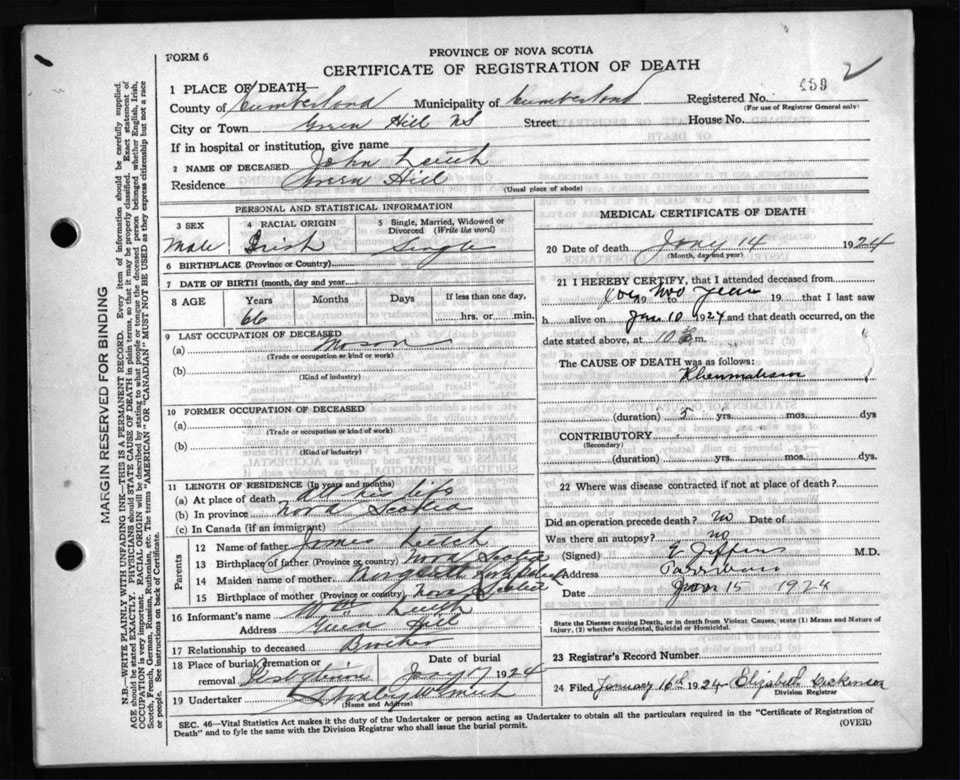 PROVINCE OF NOVA SCOTIA
FORM 6
CERTIFICATE OF REGISTRATION OF DEATH
1 PLACE OF DEATH—
County of Cumberland Municipality of Cumberland Registered No. 439 2
(For use of Registrar General only)
City or Town Green Hill NS Street House No.
If in hospital or institution, give name
2 NAME OF DECEASED John Leitch
Residence Green Hill
(Usual place of abode)
PERSONAL AND STATISTICAL INFORMATION
3 SEX 4 RACIAL ORIGIN 5 Single, Married, Widowed or
Divorced (Write the word)
Male Irish Single
6 BIRTHPLACE (Province or Country)
7 DATE OF BIRTH (month, day and year
8 AGE Years Months Days If less than one day,
66 hrs. or min.
9 LAST OCCUPATION OF DECEASED
(a) Mason
(Trade or occupation or kind or work)
(b)
(Kind of industry)
10 FORMER OCCUPATION OF DECEASED
(a)
(Trade or occupation or kind of work)
(b)
(Kind of industry)
11 LENGTH OF RESIDENCE (In years and months)
(a) At place of death All his life
(b) In province Nova Scotia
(c) In Canada (if an immigrant)
Parents
12 Name of father James Leitch
13 Birthplace of father (Province or country) Nova Scotia
14 Maiden name of mother
15 Birthplace of mother (Province or country) Nova Scotia
16 Informant's name Wm Leitch
Address Green Hill
17 Relationship to deceased Brother
18 Place of burial, cremation or Date of burial
removal Jany 17 1924
19 Undertaker
(Name and Address)
MEDICAL CERTIFICATE OF DEATH
20 Date of death Jany 14 1924
(Month, day and year)
21 I HEREBY CERTIFY, that I attended deceased from
two years 19 to 19 that I last saw
h alive on Jan 10 1924 and that death occurred, on
date stated above, at 10 m.
The CAUSE OF DEATH was as follows:
Rheumatism
(duration) 5 yrs. mos. dys
CONTRIBUTORY
(Secondary)
(duration) yrs. mos. dys.
22 Where was disease contracted if not at place of death?
Did an operation precede death? No Date of
Was there an autopsy? no
(Signed) M.D.
Address Parrsboro
Date Jan 15 1924
State the Disease causing Death, or in death from Violent Causes, state (1) Means and Nature of
Injury, (2) whether Accidental, Suicidal or Homicidal.
23 Registrar's Record Number
24 Filed January 16th 1924 Elizabeth Dickinson
Division Registrar
SEC. 46—Vital Statistics Act makes it the duty of the Undertaker or person acting as Undertaker to obtain all the particulars required in the "Certificate of Registration of
Death" and to fyle the same with the Division Registrar who shall issue the burial permit. (OVER)
MARGIN RESERVED FOR BINDING
N.B.—WRITE PLAINLY WITH UNFADING INK—THIS IS A PERMANENT RECORD. Every item of information should be carefully supplied.
AGE should be stated EXACTLY. PHYSICIANS should STATE CAUSE OF DEATH in plain terms, so that it may be properly classified. Exact statement of
OCCUPATION is very important. RACIAL ORIGIN will be described by stating to what people or tongue the deceased person belonged whether English, Irish,
Scotch, French, German, Russian, Ruthenian, etc. The terms "AMERICAN" OR "CANADIAN" MUST NOT BE USED as they express citizenship but not a race
or people. See instructions on back of Certificate.